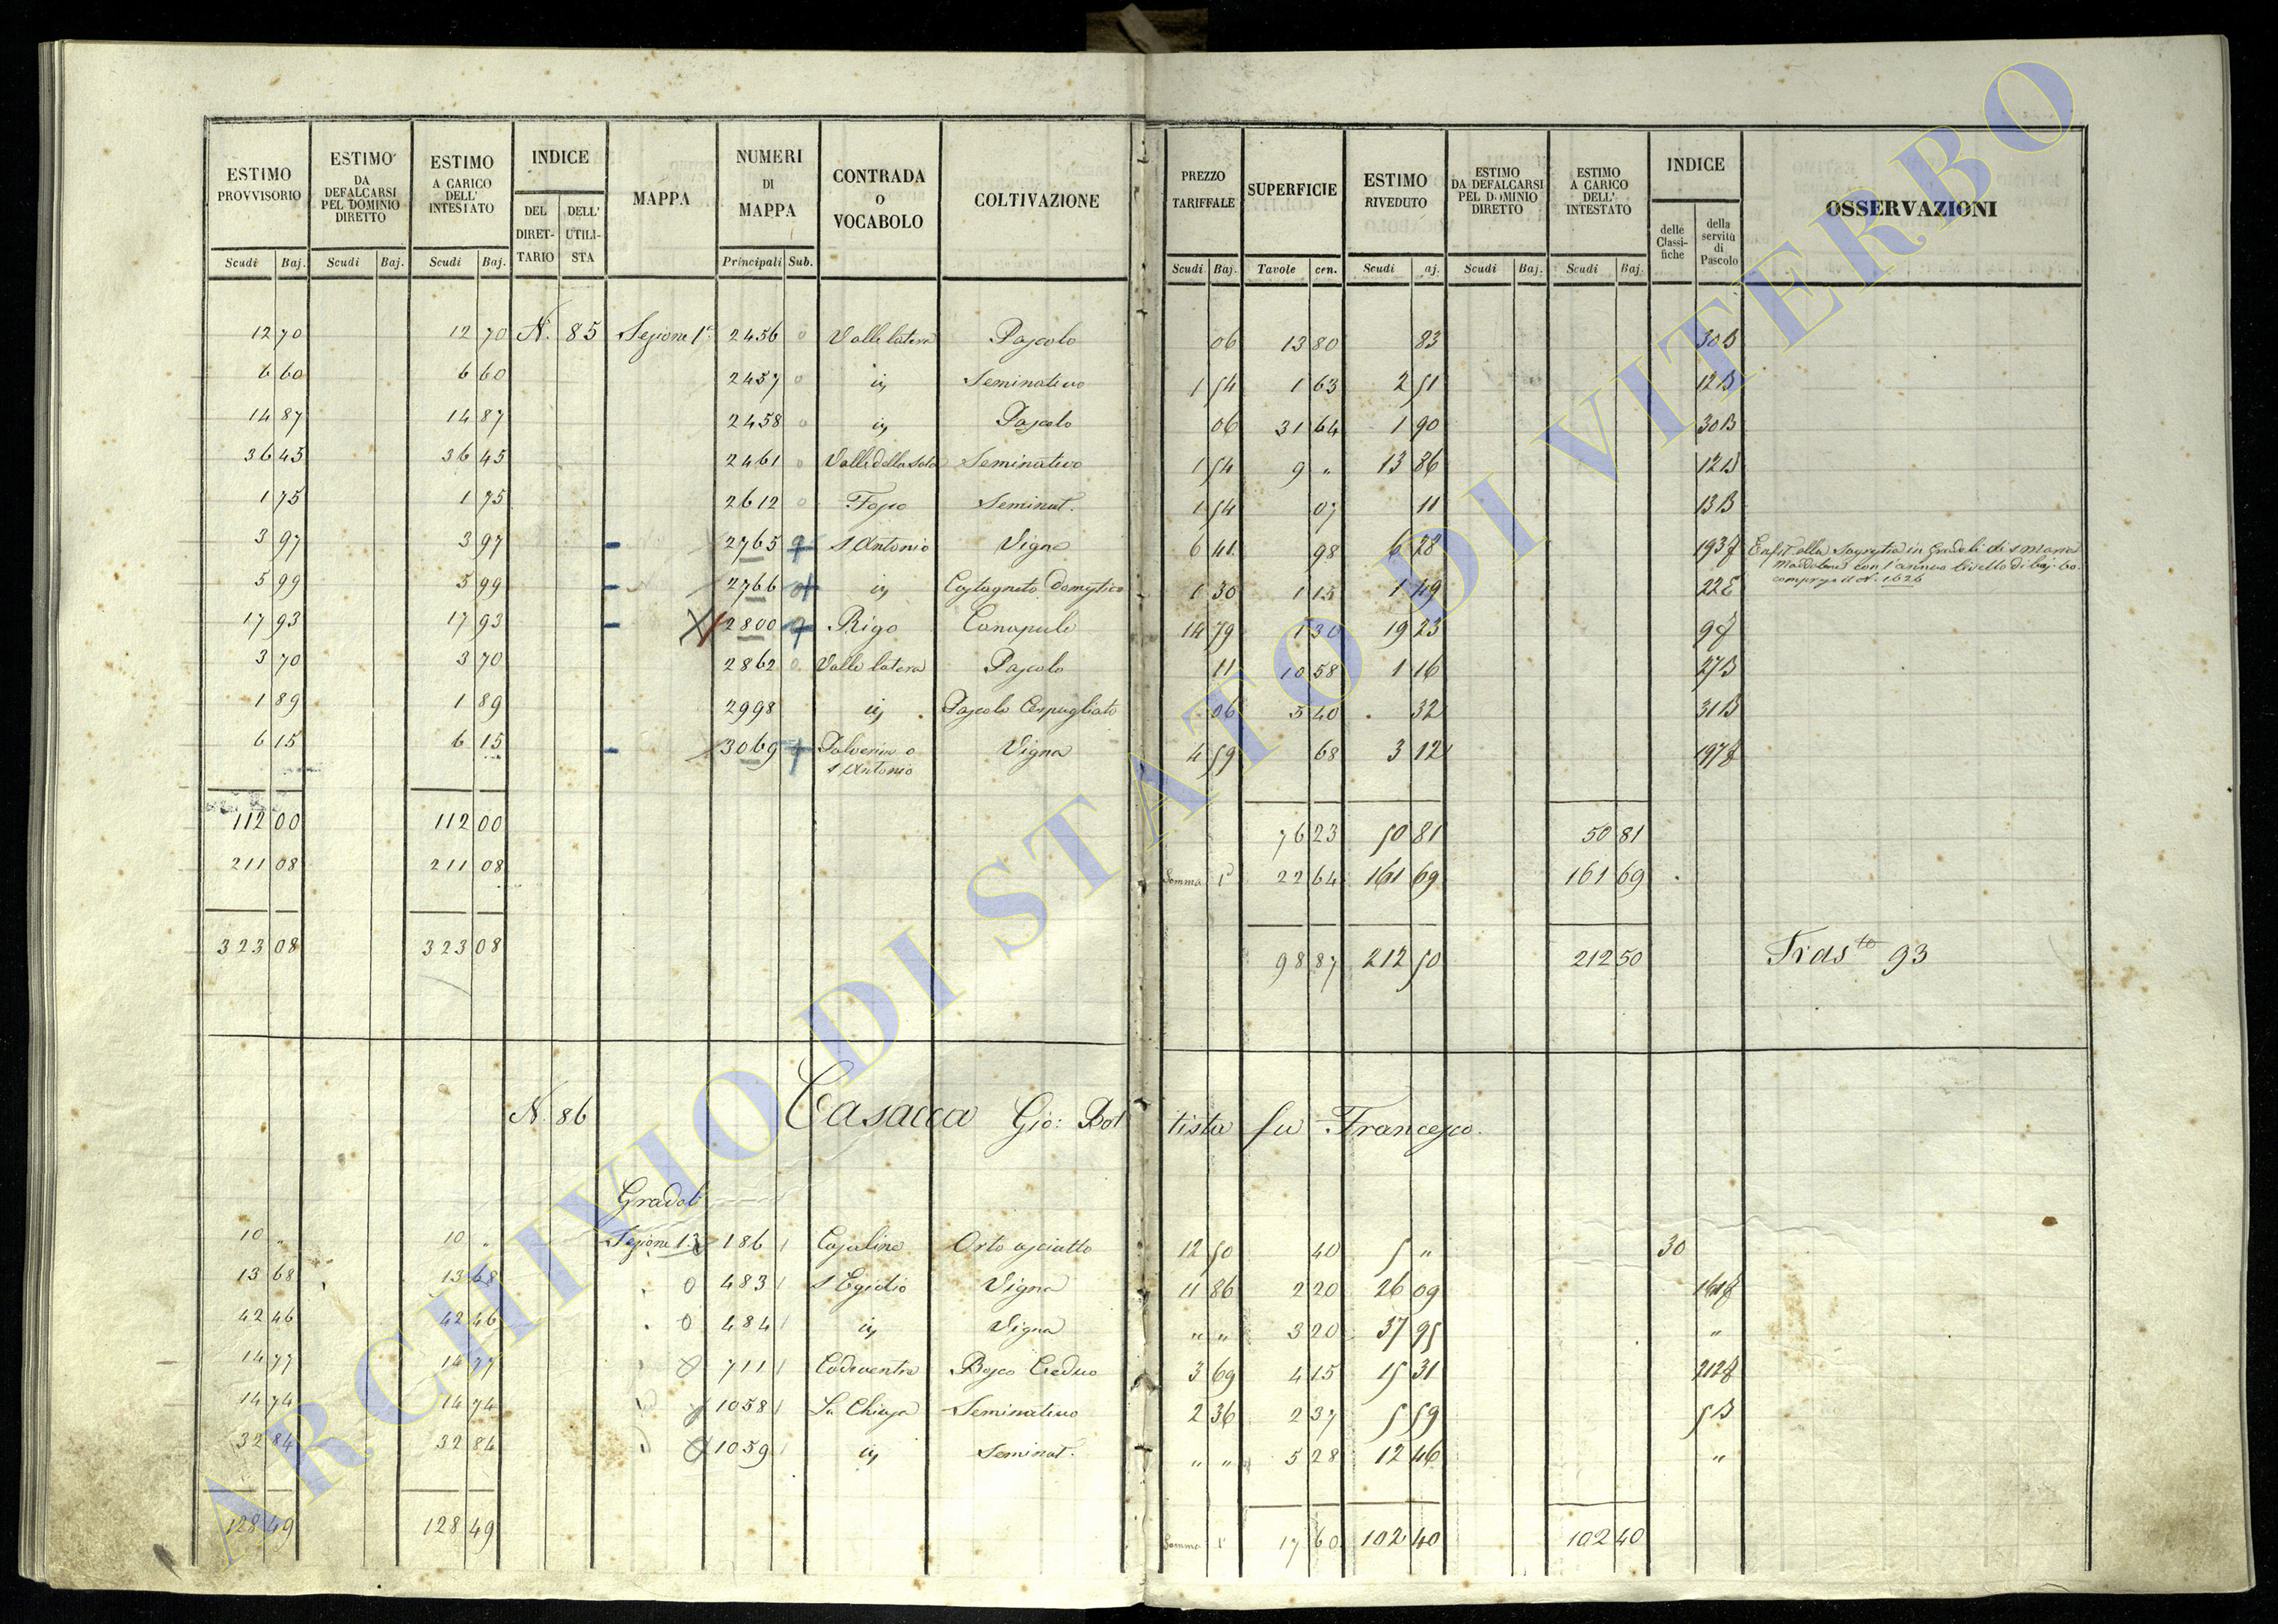 ESTIMO PROVVISORIO | ESTIMO DA DEFALCARSI PEL DOMINIO DIRETTO | ESTIMO A CARICO DELL' INTESTATO | INDICE | MAPPA | NUMERI DI MAPPA | CONTRADA O VOCABOLO | COLTIVAZIONE | PREZZO TARIFFALE | SUPERFICIE | ESTIMO RIVEDUTO | ESTIMO DA DEFALCARSI PEL DOMINIO DIRETTO | ESTIMO A CARICO DELL' INTESTATO | INDICE | OSSERVAZIONI
DEL DIRET-TARIO | DELL' UTILI-STA | delle Classi-fiche | della servitù di Pascolo
Scudi | Baj. | Scudi | Baj. | Scudi | Baj. | Principali | Sub. | Scudi | Baj. | Tavole | cen. | Scudi | aj. | Scudi | Baj. | Scudi | Baj.
12 70 | 12 70 | N. 85 | Sezione 1ª | 2456 | 0 | Valle latera | Pascolo | 06 | 13 80 | 83 | 30 B
6 60 | 6 60 | 2457 | 0 | iy | Seminativo | 1 54 | 1 63 | 2 51 | 12 B
14 87 | 14 87 | 2458 | 0 | iy | Pascolo | 06 | 31 64 | 1 90 | 30 B
36 45 | 36 45 | 2461 | 0 | Valle della | Seminativo | 1 54 | 9 " | 13 86 | 12 B
1 75 | 1 75 | 2612 | 0 | Seminat. | 1 54 | 07 | 11 | 13 B
3 97 | 3 97 | 2765 | S Antonio | Vigna | 6 41 | 98 | 6 28 | 193 f | Enfit. alla Sagrestia in Gradoli di S Maria
Maddalena con l'annuo livello di baj. 60.
5 99 | 5 99 | 2766 | iy | Castagneto Domestico | 1 30 | 1 15 | 1 49 | 22 E | compreso il N. 1626
17 93 | 17 93 | X | 2800 | Rigo | Canapule | 14 79 | 1 30 | 19 23 | 9 f
3 70 | 3 70 | 2862 | 0 | Valle latera | Pascolo | 11 | 10 58 | 1 16 | 27 B
1 89 | 1 89 | 2998 | iy | Pascolo Cespugliato | 06 | 5 40 | 32 | 31 B
6 15 | 6 15 | 3069 | Polverino o | Vigna | 4 59 | 68 | 3 12 | 197 f
S Antonio
112 00 | 112 00 | 76 23 | 50 81 | 50 81
211 08 | 211 08 | Somma 1ª | 22 64 | 161 69 | 161 69
323 08 | 323 08 | 98 87 | 212 50 | 212 50 | Tras.to 93
N. 86 | Casacca Gio: Battista fu Francesco.
Gradoli
10 " | 10 " | Sezione 1ª | 186 | 1 | Casaline | Orto asciutto | 12 50 | 40 | 5 " | 30
13 68 | 13 68 | 0 | 483 | 1 | S Egidio | Vigna | 11 86 | 2 20 | 26 09 | 161 f
42 46 | 42 46 | 0 | 484 | 1 | iy | Vigna | " " | 3 20 | 37 95 | "
14 77 | 14 77 | 711 | 1 | Bosco Ceduo | 3 69 | 4 15 | 15 31 | 212 f
14 74 | 14 74 | 1058 | 1 | La Chiusa | Seminativo | 2 36 | 2 37 | 5 59 | 5 B
32 84 | 32 84 | 1059 | 1 | iy | Seminat. | " " | 5 28 | 12 46 | "
128 49 | 128 49 | Somma 1ª | 17 60 | 102 40 | 102 40
ARCHIVIO DI STATO DI VITERBO